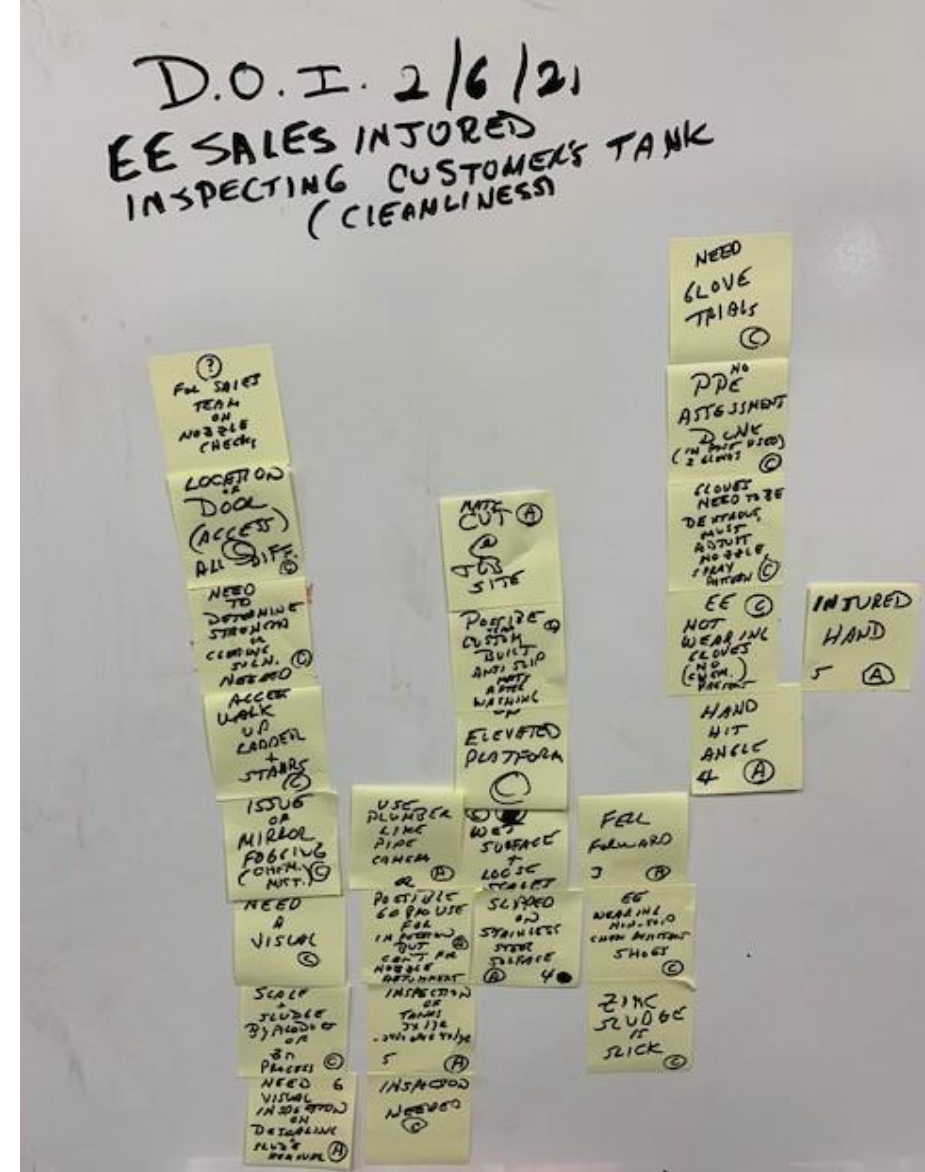 D.O.I. 2/6/21
EE SALES INJURED
INSPECTING CUSTOMER'S TANK
(CLEANLINESS)
?
FOR SALES
TEAM
ON
NOZZLE
CHECKS
LOCATION
OF
DOOR
(ACCESS)
ALL DIFF.
C
NEED
TO
DETERMINE
STRENGTH
OF
CLEANING
SOLN.
NEEDED
C
ACCESS
WALK
UP
LADDER
+
STAIRS
C
ISSUE
OF
MIRROR
FOGGING
(CHEM.
MIST.)
C
NEED
A
VISUAL
C
SCALE
+
SLUDGE
BYPRODUCT
OF
PROCESS
C
NEED 6
VISUAL
INSPECTION
ON
REMOVAL
A
USE
PLUMBER
LIKE
PIPE
CAMERA
A
OR
POSSIBLE
GO PRO USE
FOR
INSPECTION
BUT
CAN'T FOR
NOZZLE
ADJUSTMENT
A
INSPECTION
OF
TANKS
5 A
INSPECTION
NEEDED
C
MATS
CUT A
@
JOB
SITE
POSSIBLE
CUSTOM
BUILT
ANTI SLIP
MATS
AFTER
WASHING
ELEVATED
PLATFORM
C
WET
SURFACE
+
LOOSE
SCALES
SLIPPED
ON
STAINLESS
STEEL
SURFACE
A 4
FELL
FORWARD
3 A
EE
WEARING
NON-SLIP
CHEM RESISTANT
SHOES
C
ZINC
SLUDGE
IS
SLICK
C
NEED
GLOVE
TRIALS
C
NO
PPE
ASSESSMENT
DONE
(IN PAST USED)
2 GLOVES
C
GLOVES
NEED TO BE
DEXTROUS,
MUST
ADJUST
NOZZLE,
SPRAY
PATTERN C
EE C
NOT
WEARING
GLOVES
(NO
CHEM.)
HAND
HIT
ANGLE
4 A
INJURED
HAND
5 A